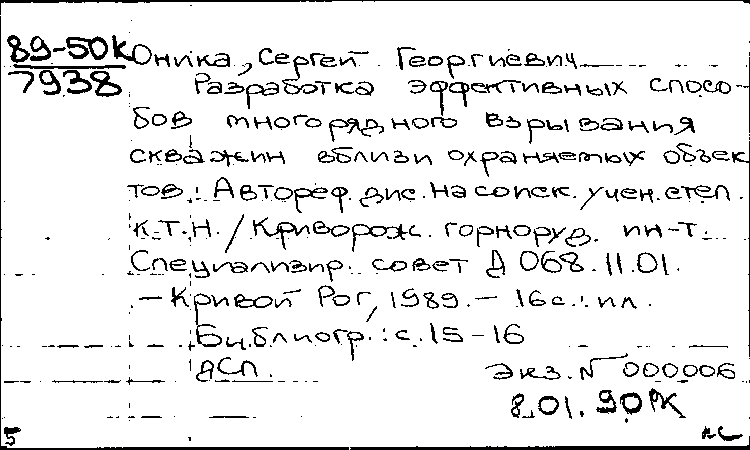 89-50к
7938
Оника, Сергей Георгиевич
Разработка эффективных спосо-
бов многорядного взрывания
скважин вблизи охраняемых объек
тов: Автореф. дис. на соиск. учен. степ.
к.т.н. / Криворож. горноруд. ин-т.
Специализир. совет Д 068.11.01.
– Кривой Рог, 1989. – 16с.: ил.
Библиогр.: с. 15-16
ДСП. Экз. N 000006
8.01.90
5